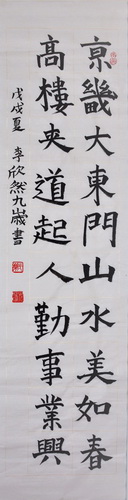 京畿大東門山水美如春
高樓夾道起人勤事業興
戊戌夏 李欣然九歲書